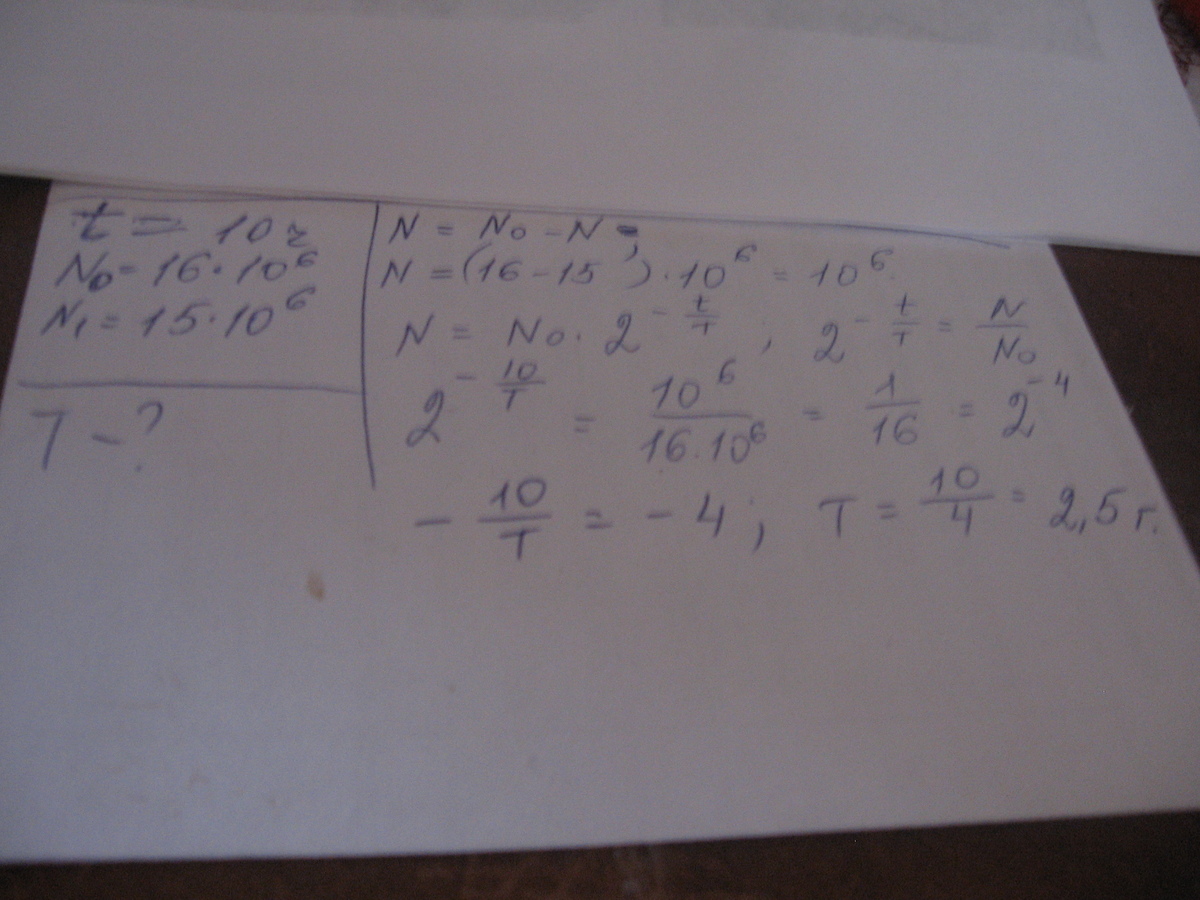 t = 10 г
N₀ = 16·10⁶
N₁ = 15·10⁶
T - ?
N = N₀ - N ;
N = (16 - 15)·10⁶ = 10⁶.
N = N₀·2^(-t/T) ; 2^(-t/T) = N/N₀
2^(-10/T) = 10⁶/(16·10⁶) = 1/16 = 2⁻⁴
-10/T = -4 ; T = 10/4 = 2,5 г.